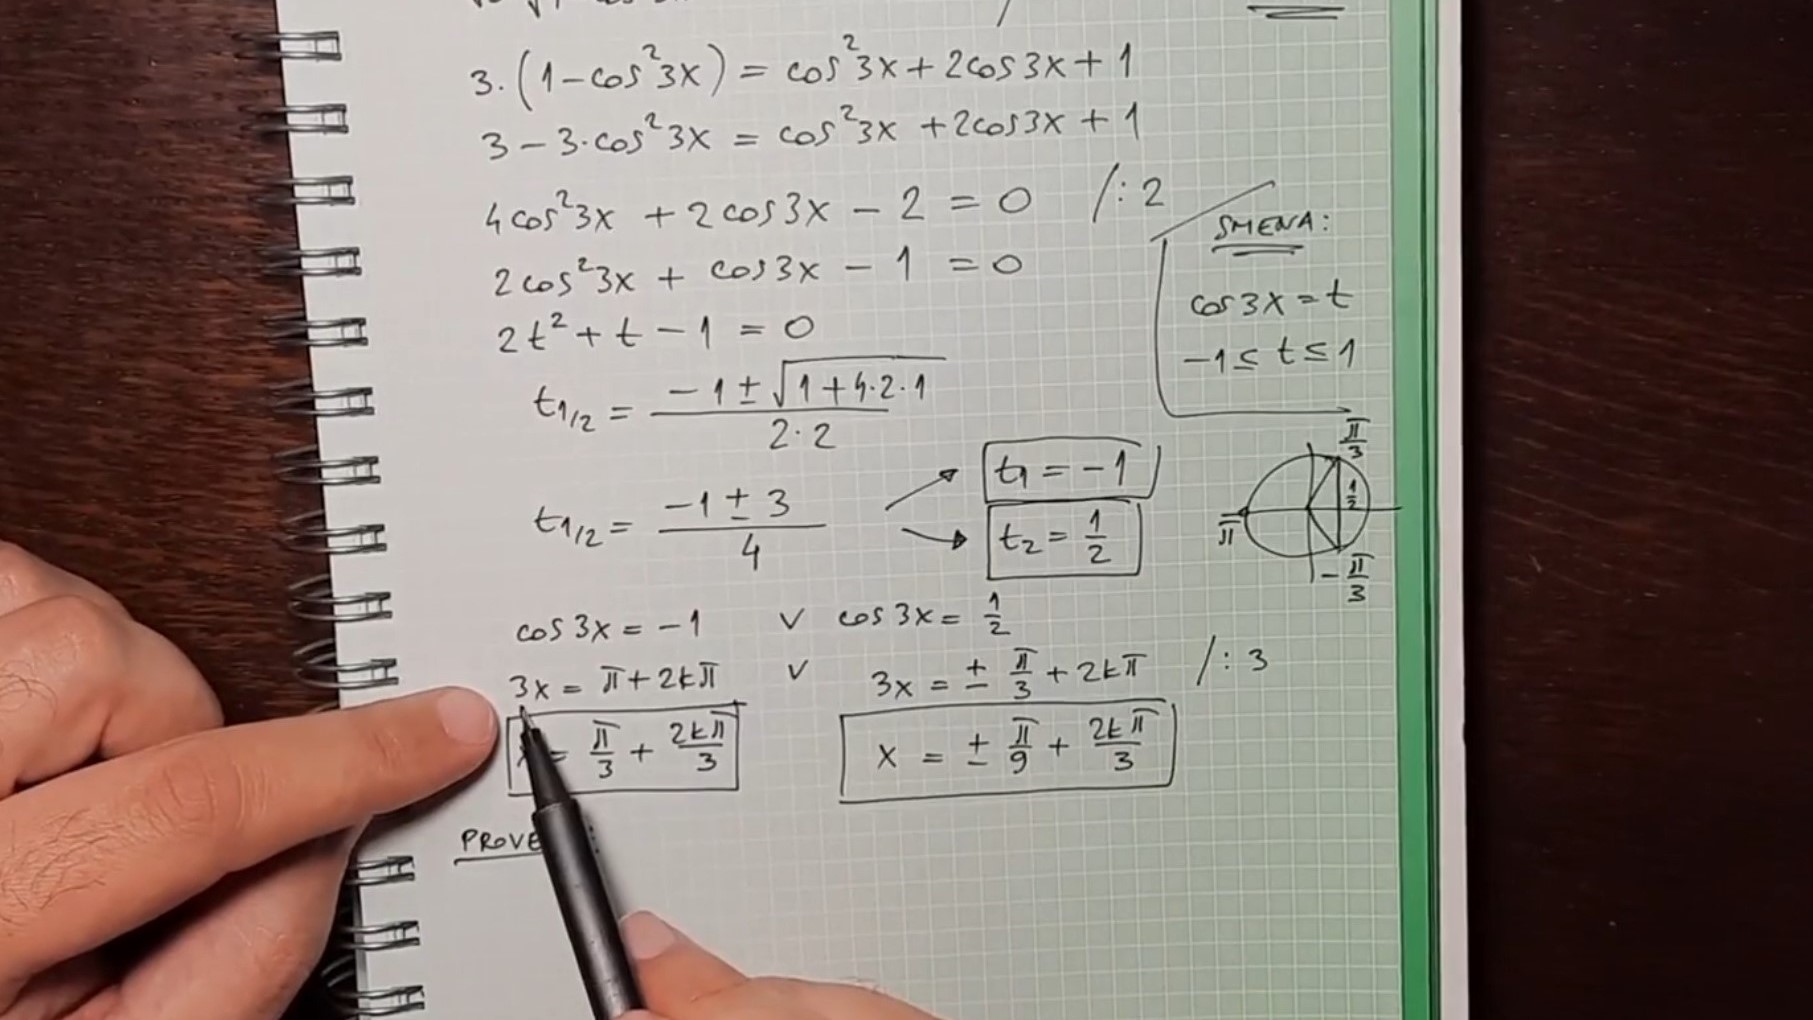 3·(1−cos²3x) = cos²3x + 2cos3x + 1
3 − 3·cos²3x = cos²3x + 2cos3x + 1
4cos²3x + 2cos3x − 2 = 0 /:2
2cos²3x + cos3x − 1 = 0
2t² + t − 1 = 0
SMENA:
cos3x = t
−1 ≤ t ≤ 1
t1/2 = (−1 ± √(1+4·2·1))/(2·2)
t1/2 = (−1 ± 3)/4
t1 = −1
t2 = 1/2
π/3
1/2
π
−π/3
cos3x = −1 ∨ cos3x = 1/2
3x = π + 2kπ ∨ 3x = ± π/3 + 2kπ /:3
x = π/3 + 2kπ/3
x = ± π/9 + 2kπ/3